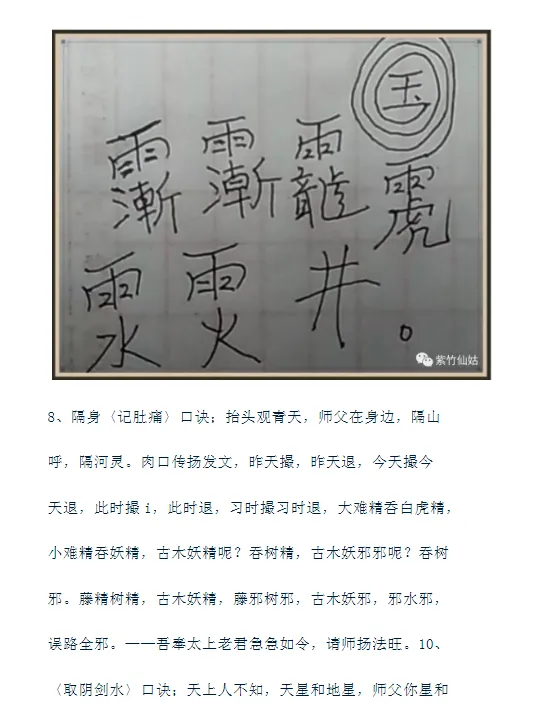 国
雨虎
雨龍
井
雨漸
雨火
雨漸
雨水
紫竹仙姑
8、隔身〈记肚痛〉口诀；抬头观青天，师父在身边，隔山
呼，隔河灵。肉口传扬发文，昨天撮，昨天退，今天撮今
天退，此时撮i，此时退，习时撮习时退，大难精吞白虎精，
小难精吞妖精，古木妖精呢？吞树精，古木妖邪邪呢？吞树
邪。藤精树精，古木妖精，藤邪树邪，古木妖邪，邪水邪，
误路全邪。一一吾奉太上老君急急如令，请师扬法旺。10、
〈取阴剑水〉口诀；天上人不知，天星和地星，师父你星和